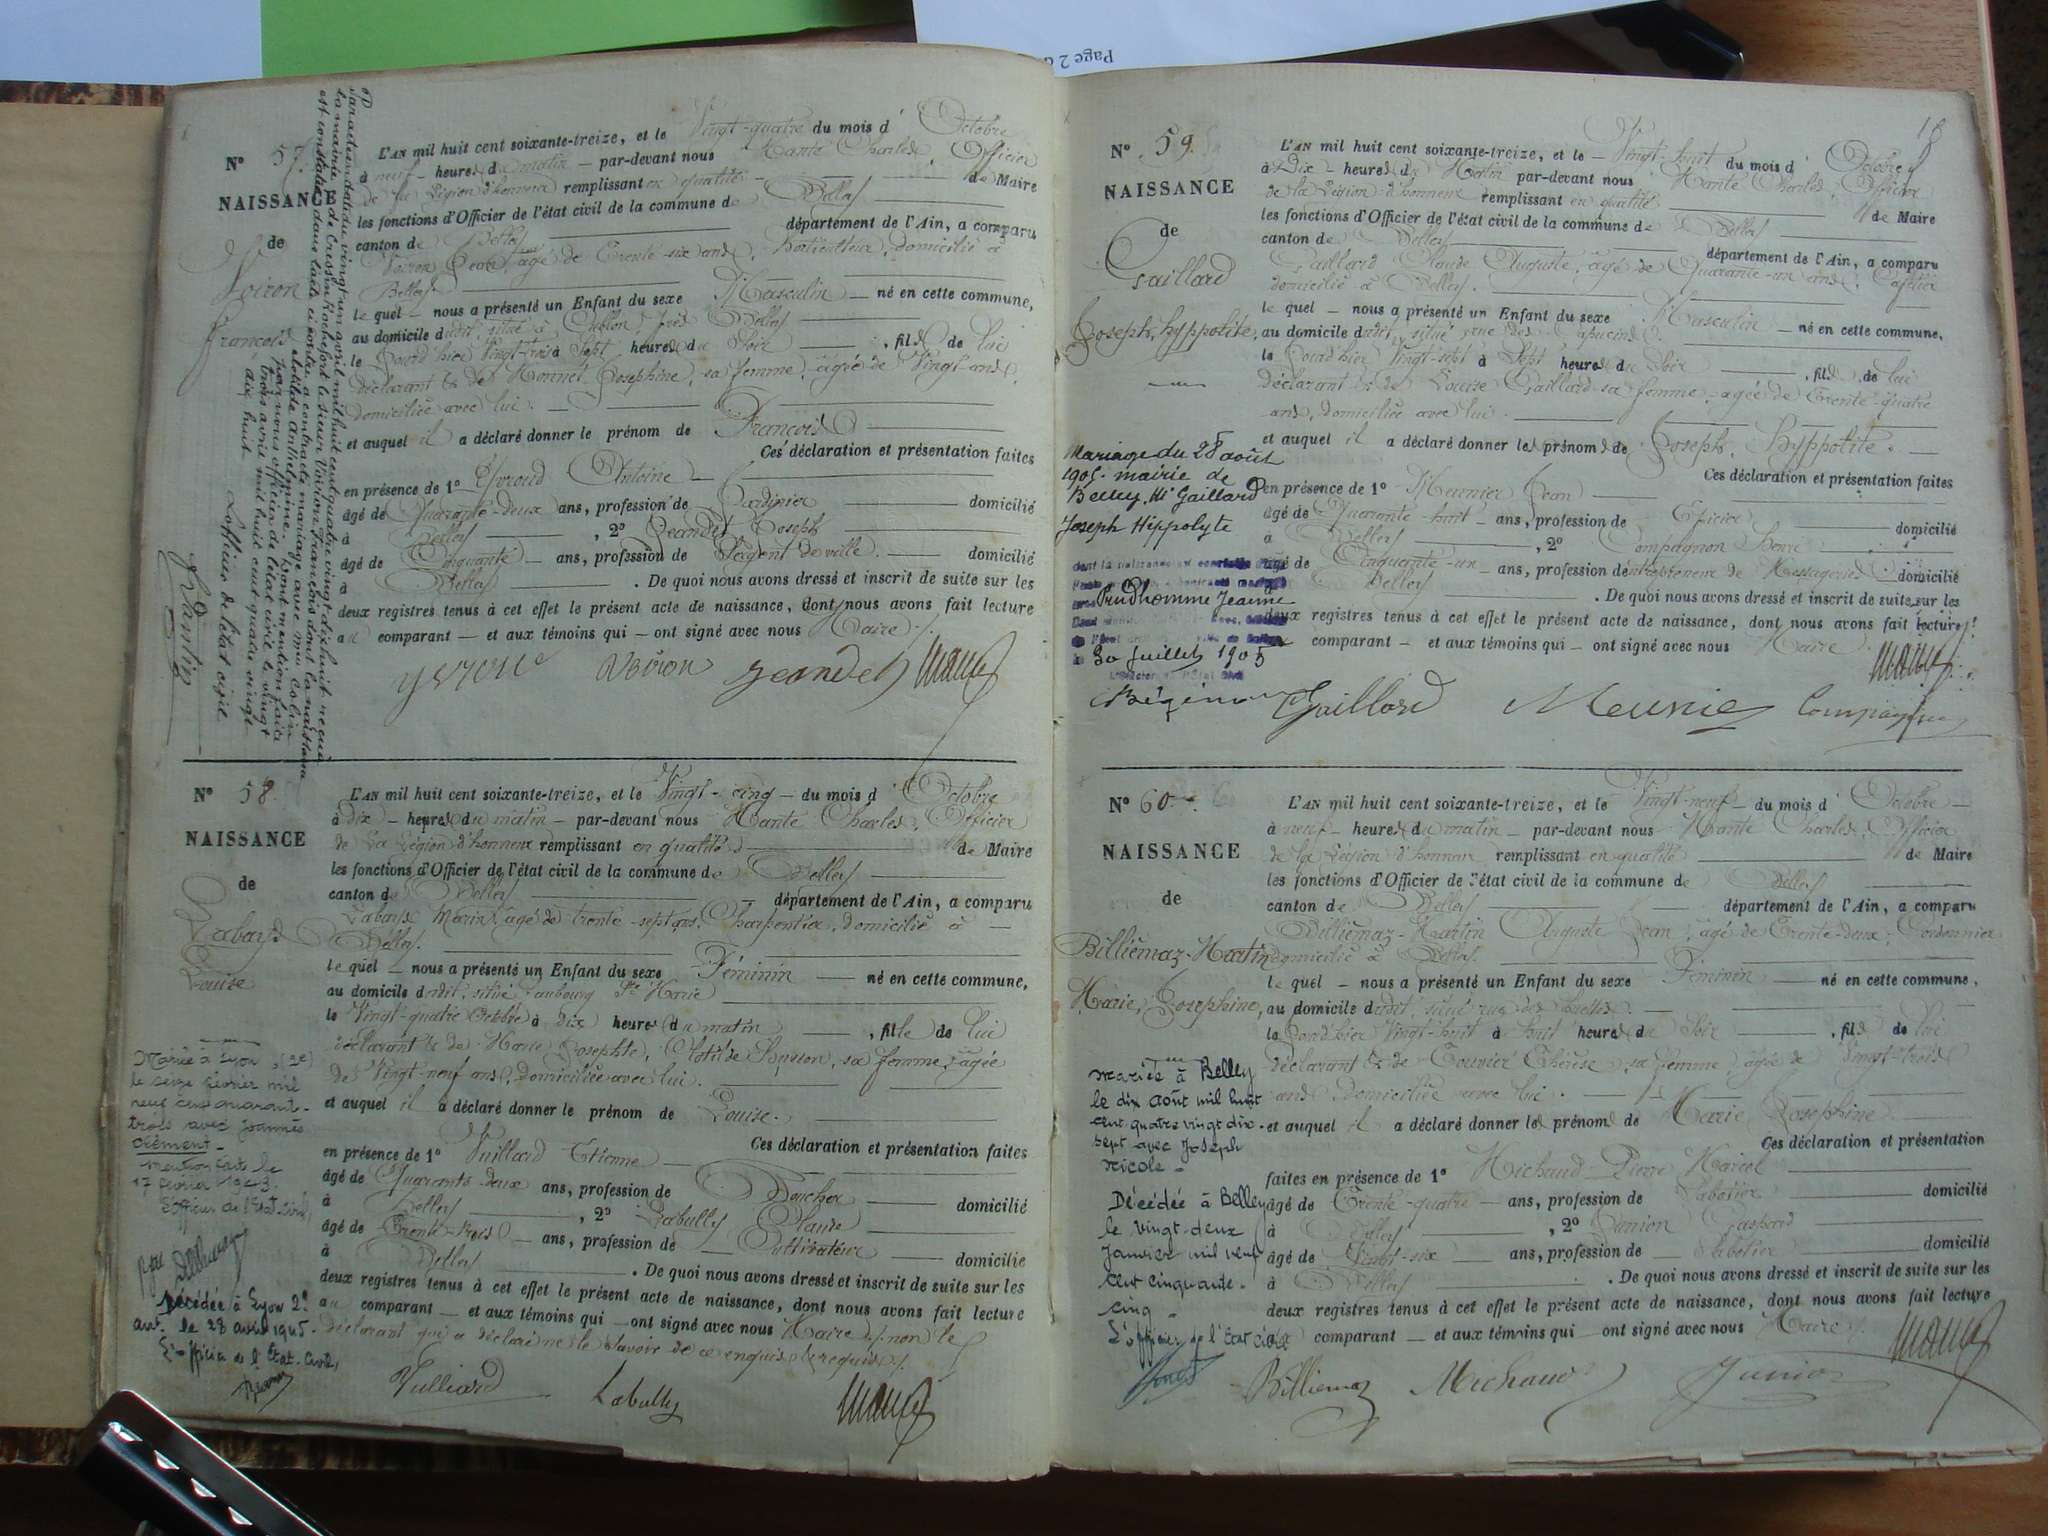 Page 2
Nº 57.
NAISSANCE
de
Voiron
François
L'AN mil huit cent soixante-treize, et le Vingt-quatre du mois d' Octobre
à neuf - heures du matin - par-devant nous Charles, Officier
de la Légion d'honneur remplissant en qualité de Maire
les fonctions d'Officier de l'état civil de la commune de Belley
canton de Belley département de l'Ain, a comparu
Voiron Jean, âgé de Trente-six ans, horticulteur, domicilié à
Belley.
le quel - nous a présenté un Enfant du sexe Masculin - né en cette commune,
au domicile dudit, situé à près Belley
le Jourd'hier Vingt-trois à Sept heures du Soir, fils de lui
déclarant & de Monnet Josephine, sa femme, âgée de Vingt ans,
domiciliée avec lui.
et auquel il a déclaré donner le prénom de François
Ces déclaration et présentation faites
en présence de 1º Antoine
âgé de Quarante-deux ans, profession de Jardinier domicilié
à Belley, 2º Jeandet Joseph
âgé de Cinquante - ans, profession de Sergent de ville. domicilié
à Belley. De quoi nous avons dressé et inscrit de suite sur les
deux registres tenus à cet effet le présent acte de naissance, dont nous avons fait lecture
au comparant - et aux témoins qui - ont signé avec nous Maire
Voiron Jeandet
Par acte en date du vingt-un avril mil huit cent quatre vingt dix huit reçu
à la mairie de Cressin Rochefort le sieur Voiron François dont la naissance
est constatée dans l'acte ci contre a contracté mariage avec Mlle Colin
clotilde Anthelmine. Dont mention faite
par nous officier de l'état civil le vingt
trois avril mil huit cent quatre vingt
dix huit
L'officier de l'état civil
Nº 58
NAISSANCE
de
Labaye
Louise
L'AN mil huit cent soixante-treize, et le Vingt-cinq - du mois d' Octobre
à dix - heures du matin - par-devant nous Charles, Officier
de la Légion d'honneur remplissant en qualité de Maire
les fonctions d'Officier de l'état civil de la commune de Belley
canton de Belley département de l'Ain, a comparu
Marin, âgé de trente-sept ans, Charpentier, domicilié à
Belley.
le quel - nous a présenté un Enfant du sexe Féminin - né en cette commune,
au domicile dudit, situé Faubourg Ste Marie
le Vingt-quatre Octobre à dix heures du matin, fille de lui
déclarant & de Marie Josephte, Clotilde, sa femme, âgée
de Vingt-neuf ans, domiciliée avec lui.
et auquel il a déclaré donner le prénom de Louise.
Ces déclaration et présentation faites
en présence de 1º Vuillard Etienne
âgé de Quarante-deux ans, profession de Boucher domicilié
à Belley, 2º Labully Claude
âgé de Trente-trois - ans, profession de Cultivateur domicilié
à Belley. De quoi nous avons dressé et inscrit de suite sur les
deux registres tenus à cet effet le présent acte de naissance, dont nous avons fait lecture
au comparant - et aux témoins qui - ont signé avec nous Maire non le
déclarant qui a déclaré ne le savoir de ce enquis & requis.
Vulliard Labully
Mariée à Lyon (2e)
le seize février mil
neuf cent quarante-
trois avec Joannès
Clément.
Mention faite le
17 février 1943.
L'officier de l'Etat civil
Décédée à Lyon 2e
arr. le 28 avril 1945.
L'officier de l'Etat-Civil,
Nº 59.
NAISSANCE
de
Gaillard
Joseph, hyppolite,
L'AN mil huit cent soixante-treize, et le - Vingt-huit du mois d' Octobre
à Dix - heures du Matin par-devant nous Charles, Officier
de la Légion d'honneur remplissant en qualité de Maire
les fonctions d'Officier de l'état civil de la commune de Belley
canton de Belley département de l'Ain, a comparu
Gaillard Claude Auguste, âgé de Quarante-un ans, Cafetier
domicilié à Belley.
le quel - nous a présenté un Enfant du sexe Masculin - né en cette commune,
au domicile dudit, situé rue des Capucins.
le Jourd'hier Vingt-sept à Sept heures du Soir, fils de lui
déclarant & de Louise Gaillard sa femme, âgée de Trente-quatre
ans, domiciliée avec lui.
et auquel il a déclaré donner les prénoms de Joseph, Hyppolite.
Ces déclaration et présentation faites
en présence de 1º Meunier Jean
âgé de Quarante-huit - ans, profession de Epicier domicilié
à Belley, 2º Compagnon Henri
âgé de Cinquante-un - ans, profession d'entrepreneur de Messageries domicilié
à Belley. De quoi nous avons dressé et inscrit de suite sur les
deux registres tenus à cet effet le présent acte de naissance, dont nous avons fait lecture
comparant - et aux témoins qui - ont signé avec nous Maire
Gaillard Meunier Compagnon
Mariage du 28 août
1905. mairie de
Belley. Mr Gaillard
Joseph Hippolyte
Prudhomme Jeanne
30 Juillet 1905
Nº 60.
NAISSANCE
de
Billiémaz-Martin
Marie, Josephine,
L'AN mil huit cent soixante-treize, et le Vingt-neuf - du mois d' Octobre
à neuf - heures du matin - par-devant nous Charles, Officier
de la Légion d'honneur remplissant en qualité de Maire
les fonctions d'Officier de l'état civil de la commune de Belley
canton de Belley département de l'Ain, a comparu
Billiémaz-Martin Auguste Jean, âgé de Trente-deux, Cordonnier
domicilié à Belley.
le quel - nous a présenté un Enfant du sexe Féminin né en cette commune,
au domicile dudit, situé rue des
le Jourd'hier Vingt-huit à huit heures du Soir, fils de lui
déclarant & de Bouvier Thérèse, sa femme, âgée de Vingt-trois
ans domiciliée avec lui.
et auquel il a déclaré donner les prénoms de Marie Josephine.
Ces déclaration et présentation
faites en présence de 1º Michaud Pierre Marcel
âgé de Trente-quatre - ans, profession de Sabotier domicilié
à Belley, 2º Junion Gaspard
âgé de Vingt-six ans, profession de Sabotier domicilié
à Belley. De quoi nous avons dressé et inscrit de suite sur les
deux registres tenus à cet effet le présent acte de naissance, dont nous avons fait lecture
comparant - et aux témoins qui - ont signé avec nous Maire
Billiemaz Michaud Junion
Mariée à Belley
le dix août mil huit
cent quatre vingt dix-
sept avec Joseph
Nicole.
Décédée à Belley
le vingt-deux
Janvier mil neuf
cent cinquante-
cinq.
L'officier de l'Etat civil